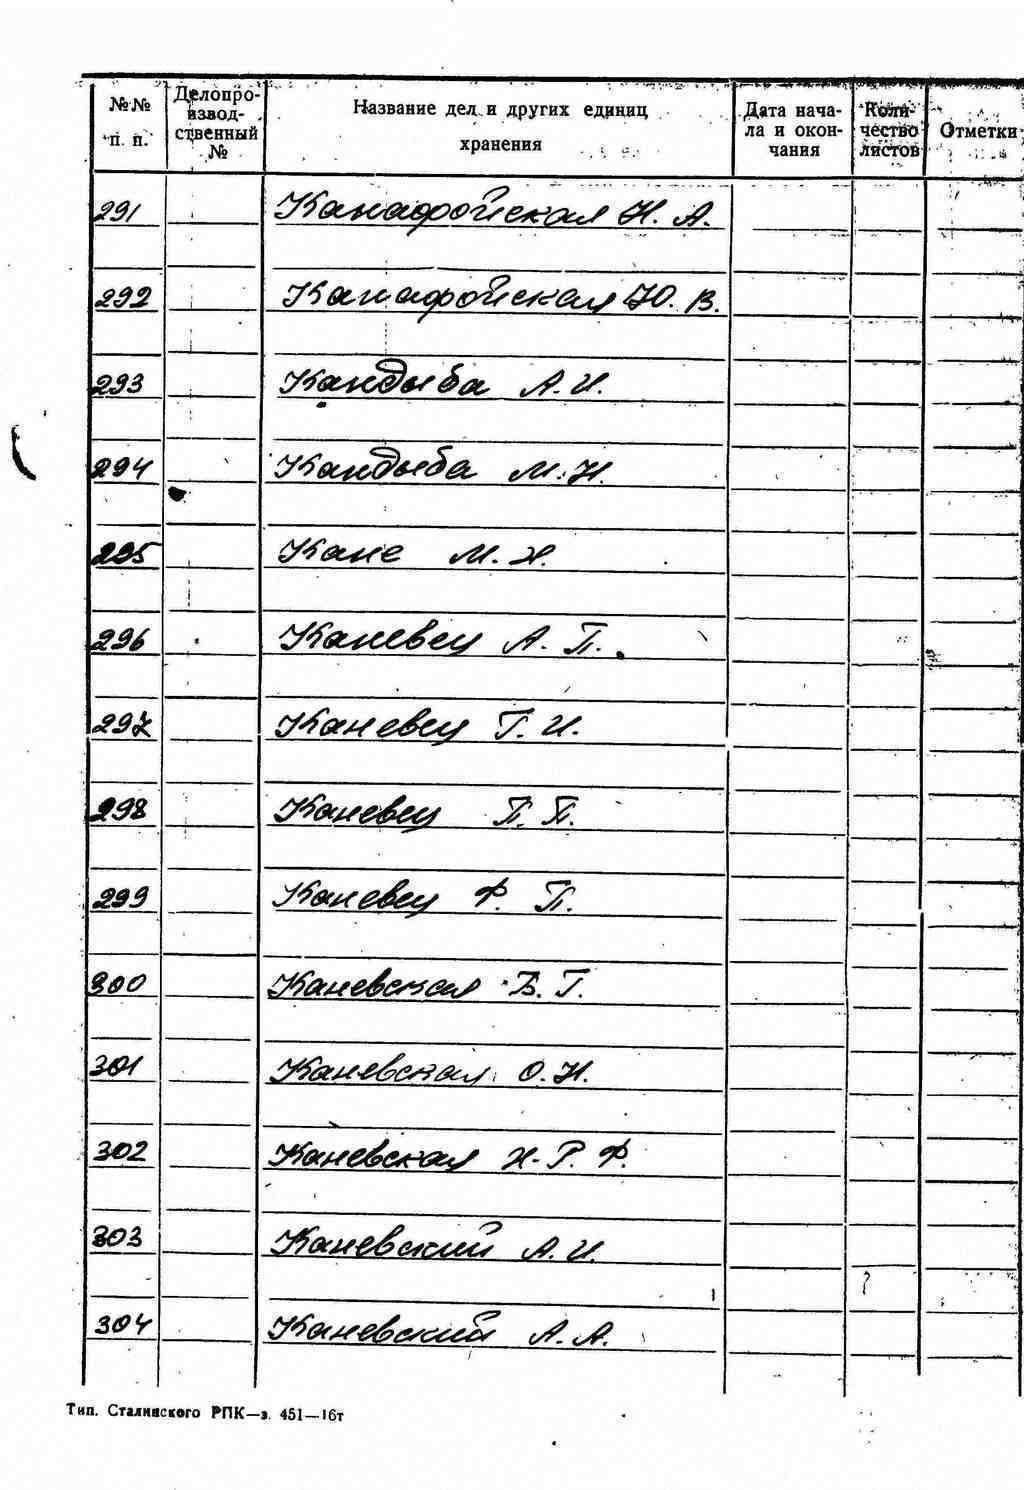 №№ п. п. Делопроизводственный № Название дел и других единиц хранения Дата начала и окончания Количество листов Отметки
291 Канафойская Н. А.
292 Канафойская Ю. В.
293 Кандыба А. И.
294 Кандыба М. Н.
295 Кане М. Х.
296 Каневец А. П.
297 Каневец Г. И.
298 Каневец П. П.
299 Каневец Ф. П.
300 Каневская Б. Г.
301 Каневская О. Н.
302 Каневская Х-Р. Ф.
303 Каневский А. И.
304 Каневский А. А.
Тип. Сталинского РПК—з. 451—16т